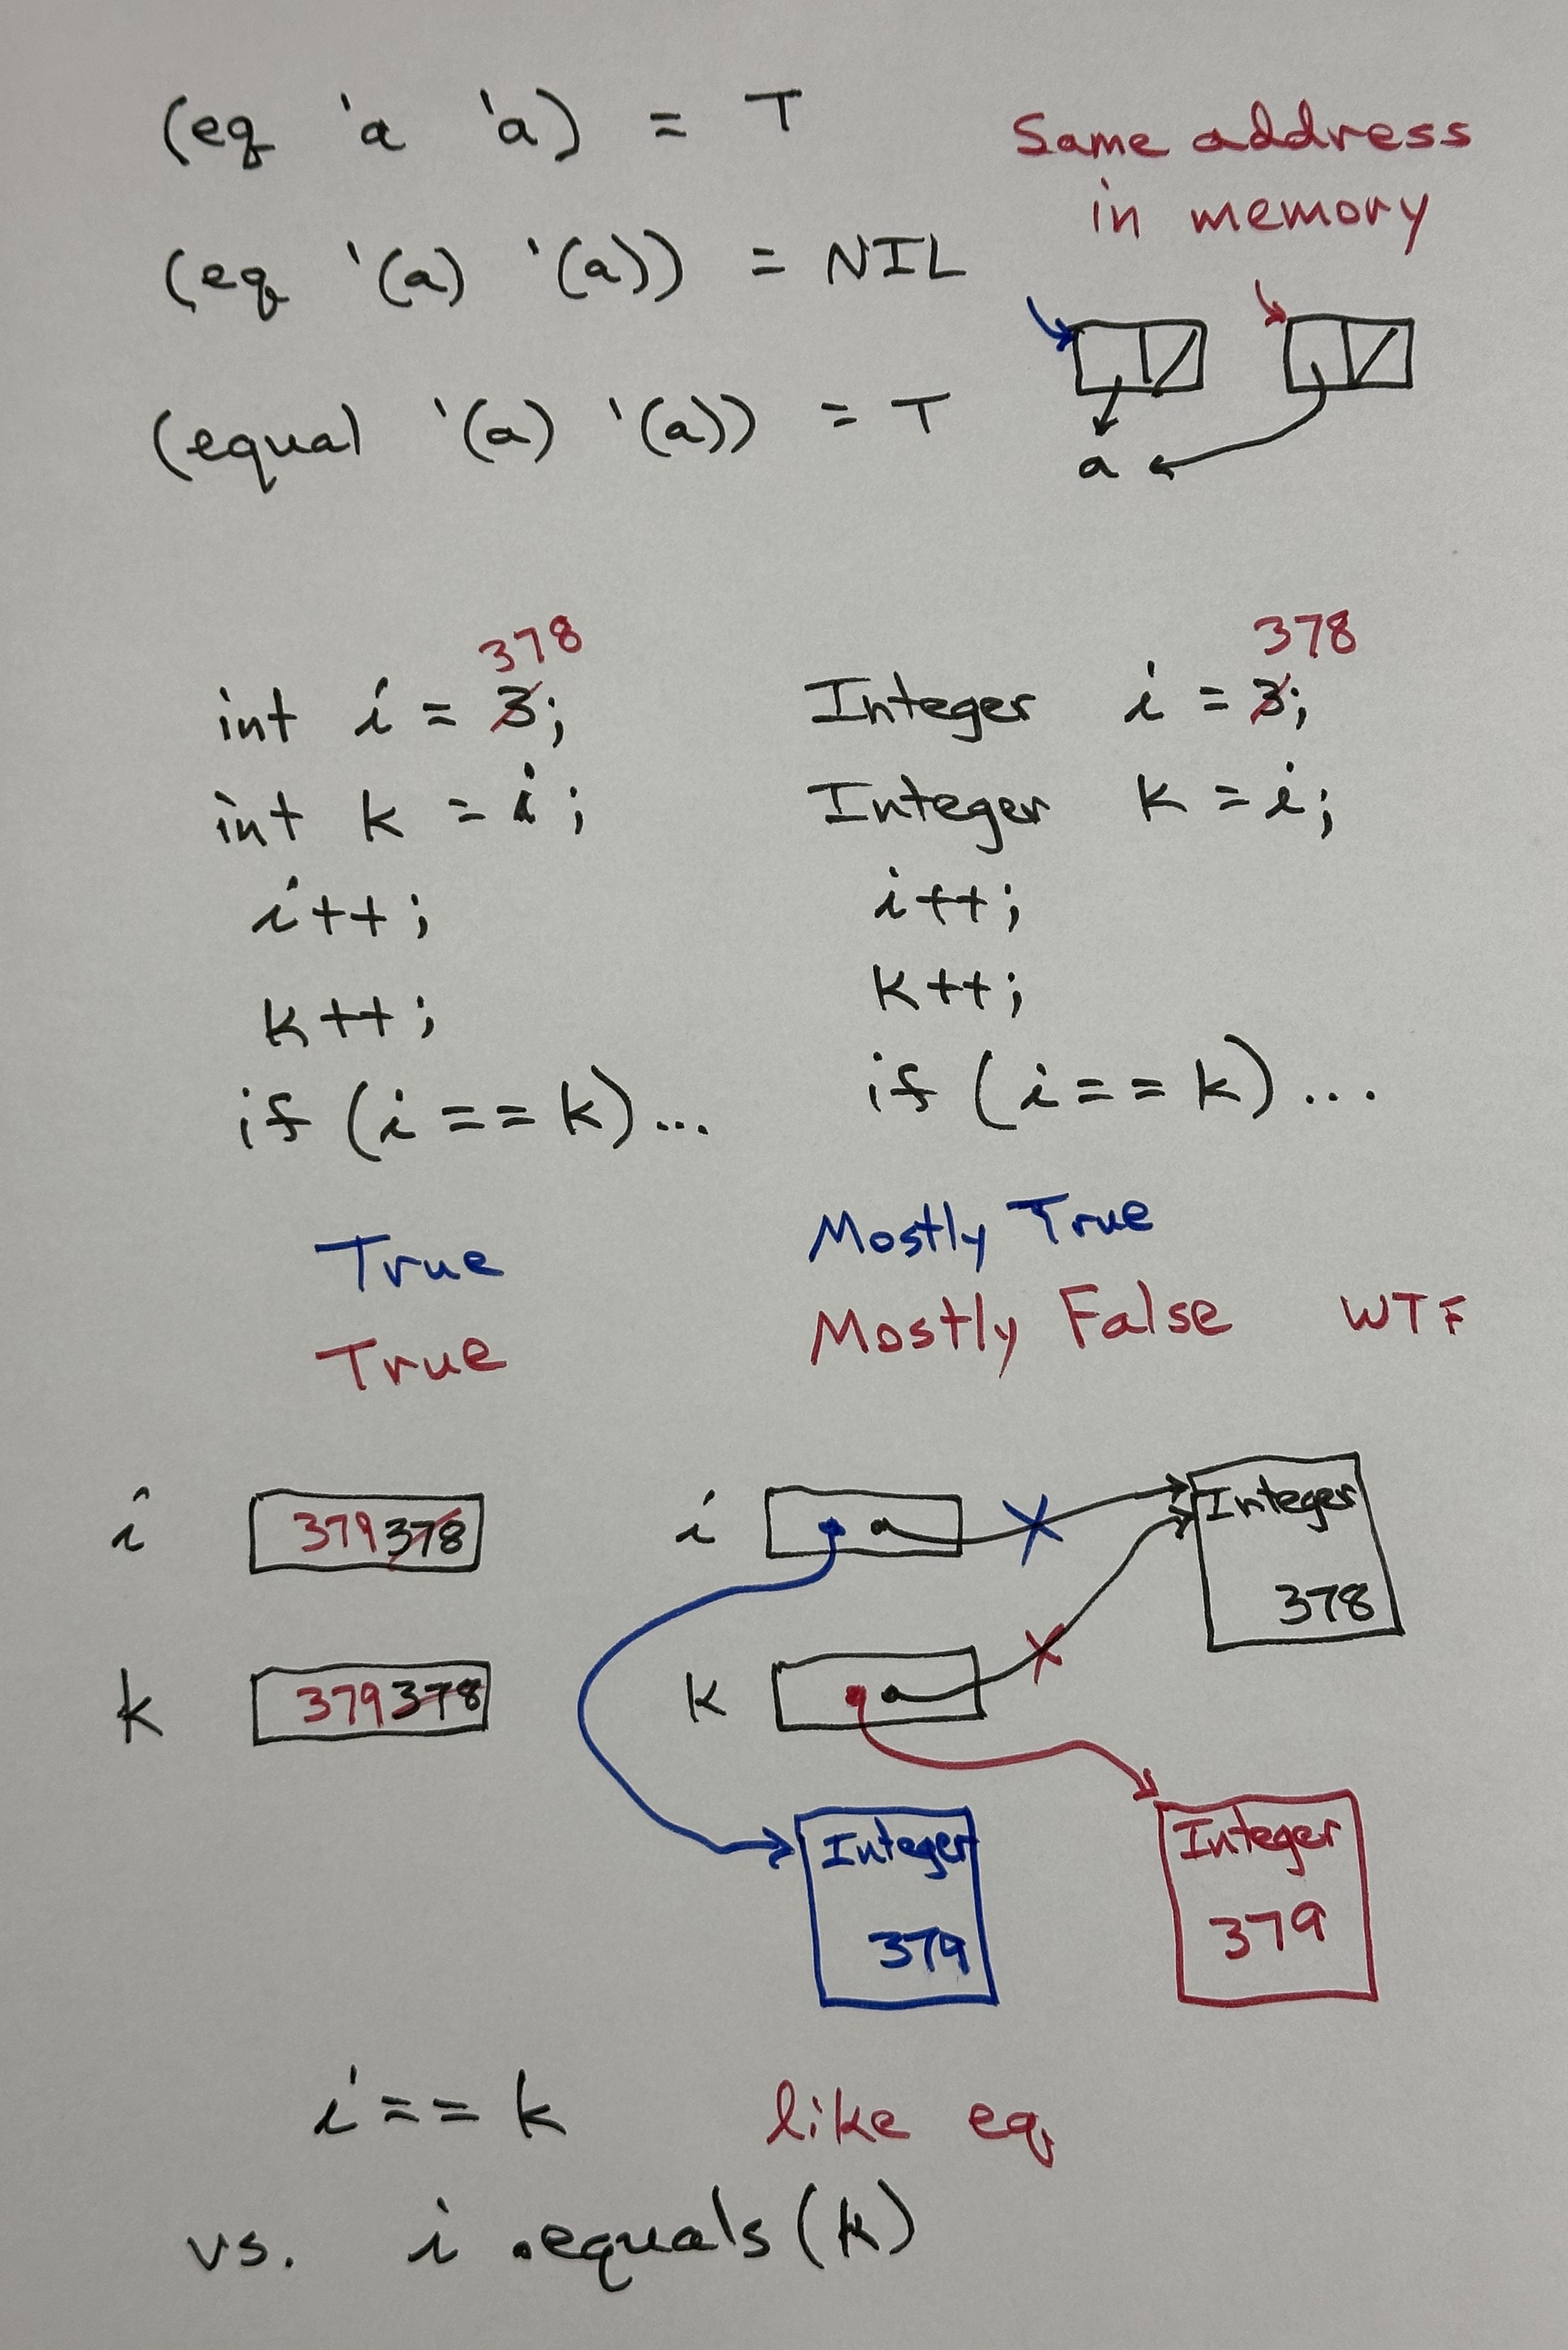 (eq 'a 'a) = T
Same address
in memory
(eq '(a) '(a)) = NIL
(equal '(a) '(a)) = T
a
378
int i = 3;
int k = i;
i++;
k++;
if (i == k)...
True
True
378
Integer i = 3;
Integer k = i;
i++;
k++;
if (i == k)...
Mostly True
Mostly False WTF
i 379 378
k 379 378
i
k
Integer
378
Integer
379
Integer
379
i == k like eq
vs. i .equals(k)